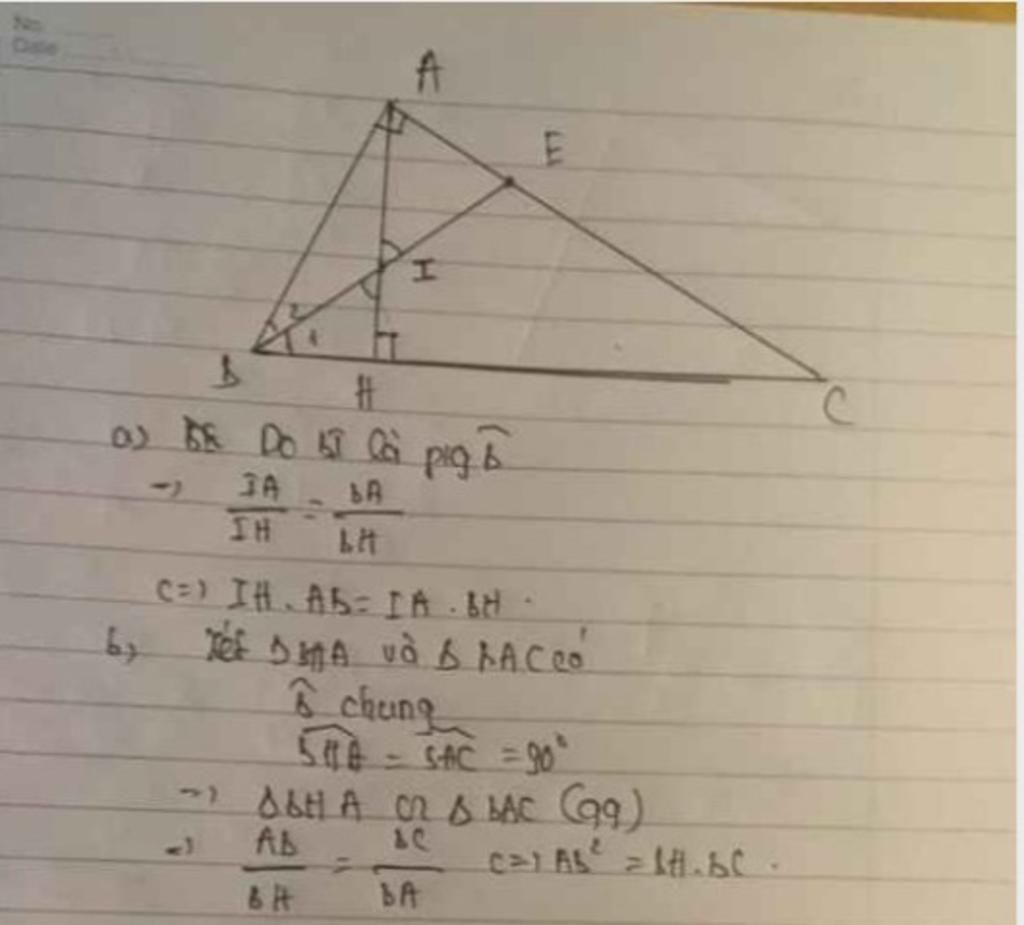 No.
Date
A
E
I
2
1
B
H
C
a) Do BI là p/g B̂
→ IA/IH = BA/BH
<=> IH. AB = IA. BH.
b) Xét Δ BHA và Δ BAC có
B̂ chung
BHA = BAC = 90°
→ Δ BHA ∽ Δ BAC (gg)
→ AB/BH = BC/BA <=> AB² = BH. BC.